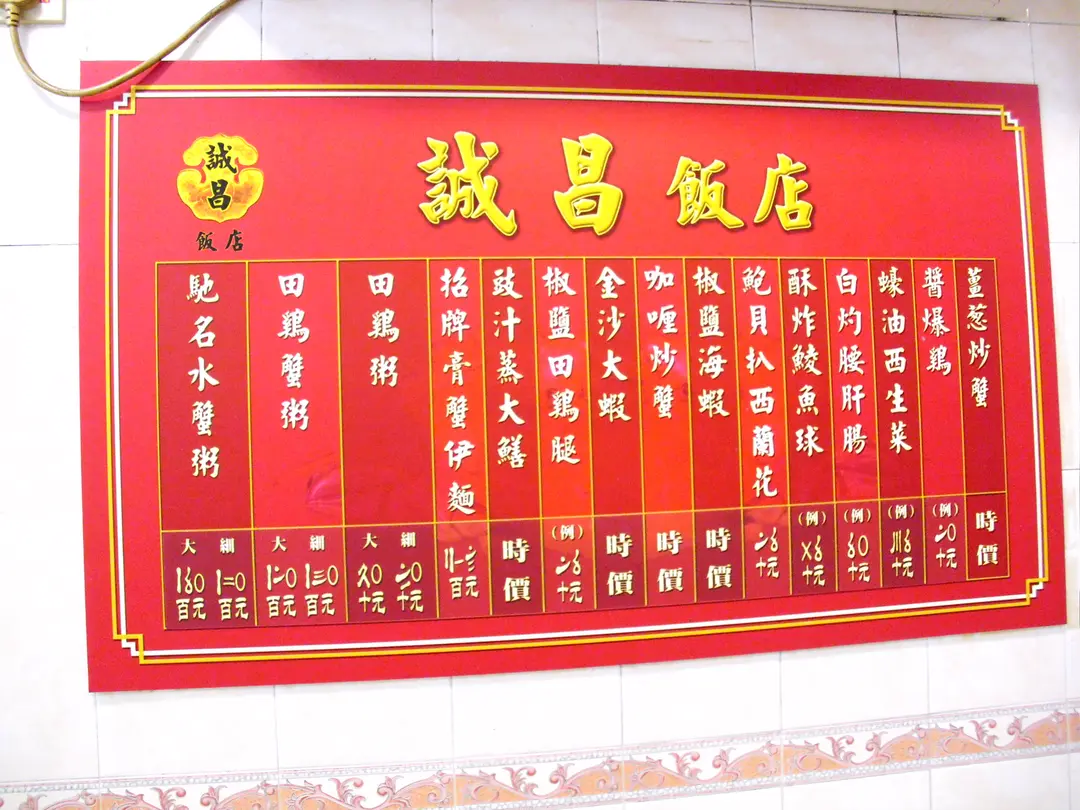 誠昌
飯店
誠昌飯店
馳名水蟹粥
大 細
〡〥〇 〡二〇
百元 百元
田鷄蟹粥
大 細
〡〦〇 〡三〇
百元 百元
田鷄粥
大 細
〩〇 〧〇
十元 十元
招牌膏蟹伊麵
百元
豉汁蒸大鱔
時價
椒鹽田鷄腿
(例)
〧〥
十元
金沙大蝦
時價
咖喱炒蟹
時價
椒鹽海蝦
時價
鮑貝扒西蘭花
〧〥
十元
酥炸鯪魚球
(例)
〤〥
十元
白灼腰肝腸
(例)
〥〇
十元
蠔油西生菜
(例)
〣〥
十元
醬爆鷄
(例)
〧〇
十元
薑葱炒蟹
時價